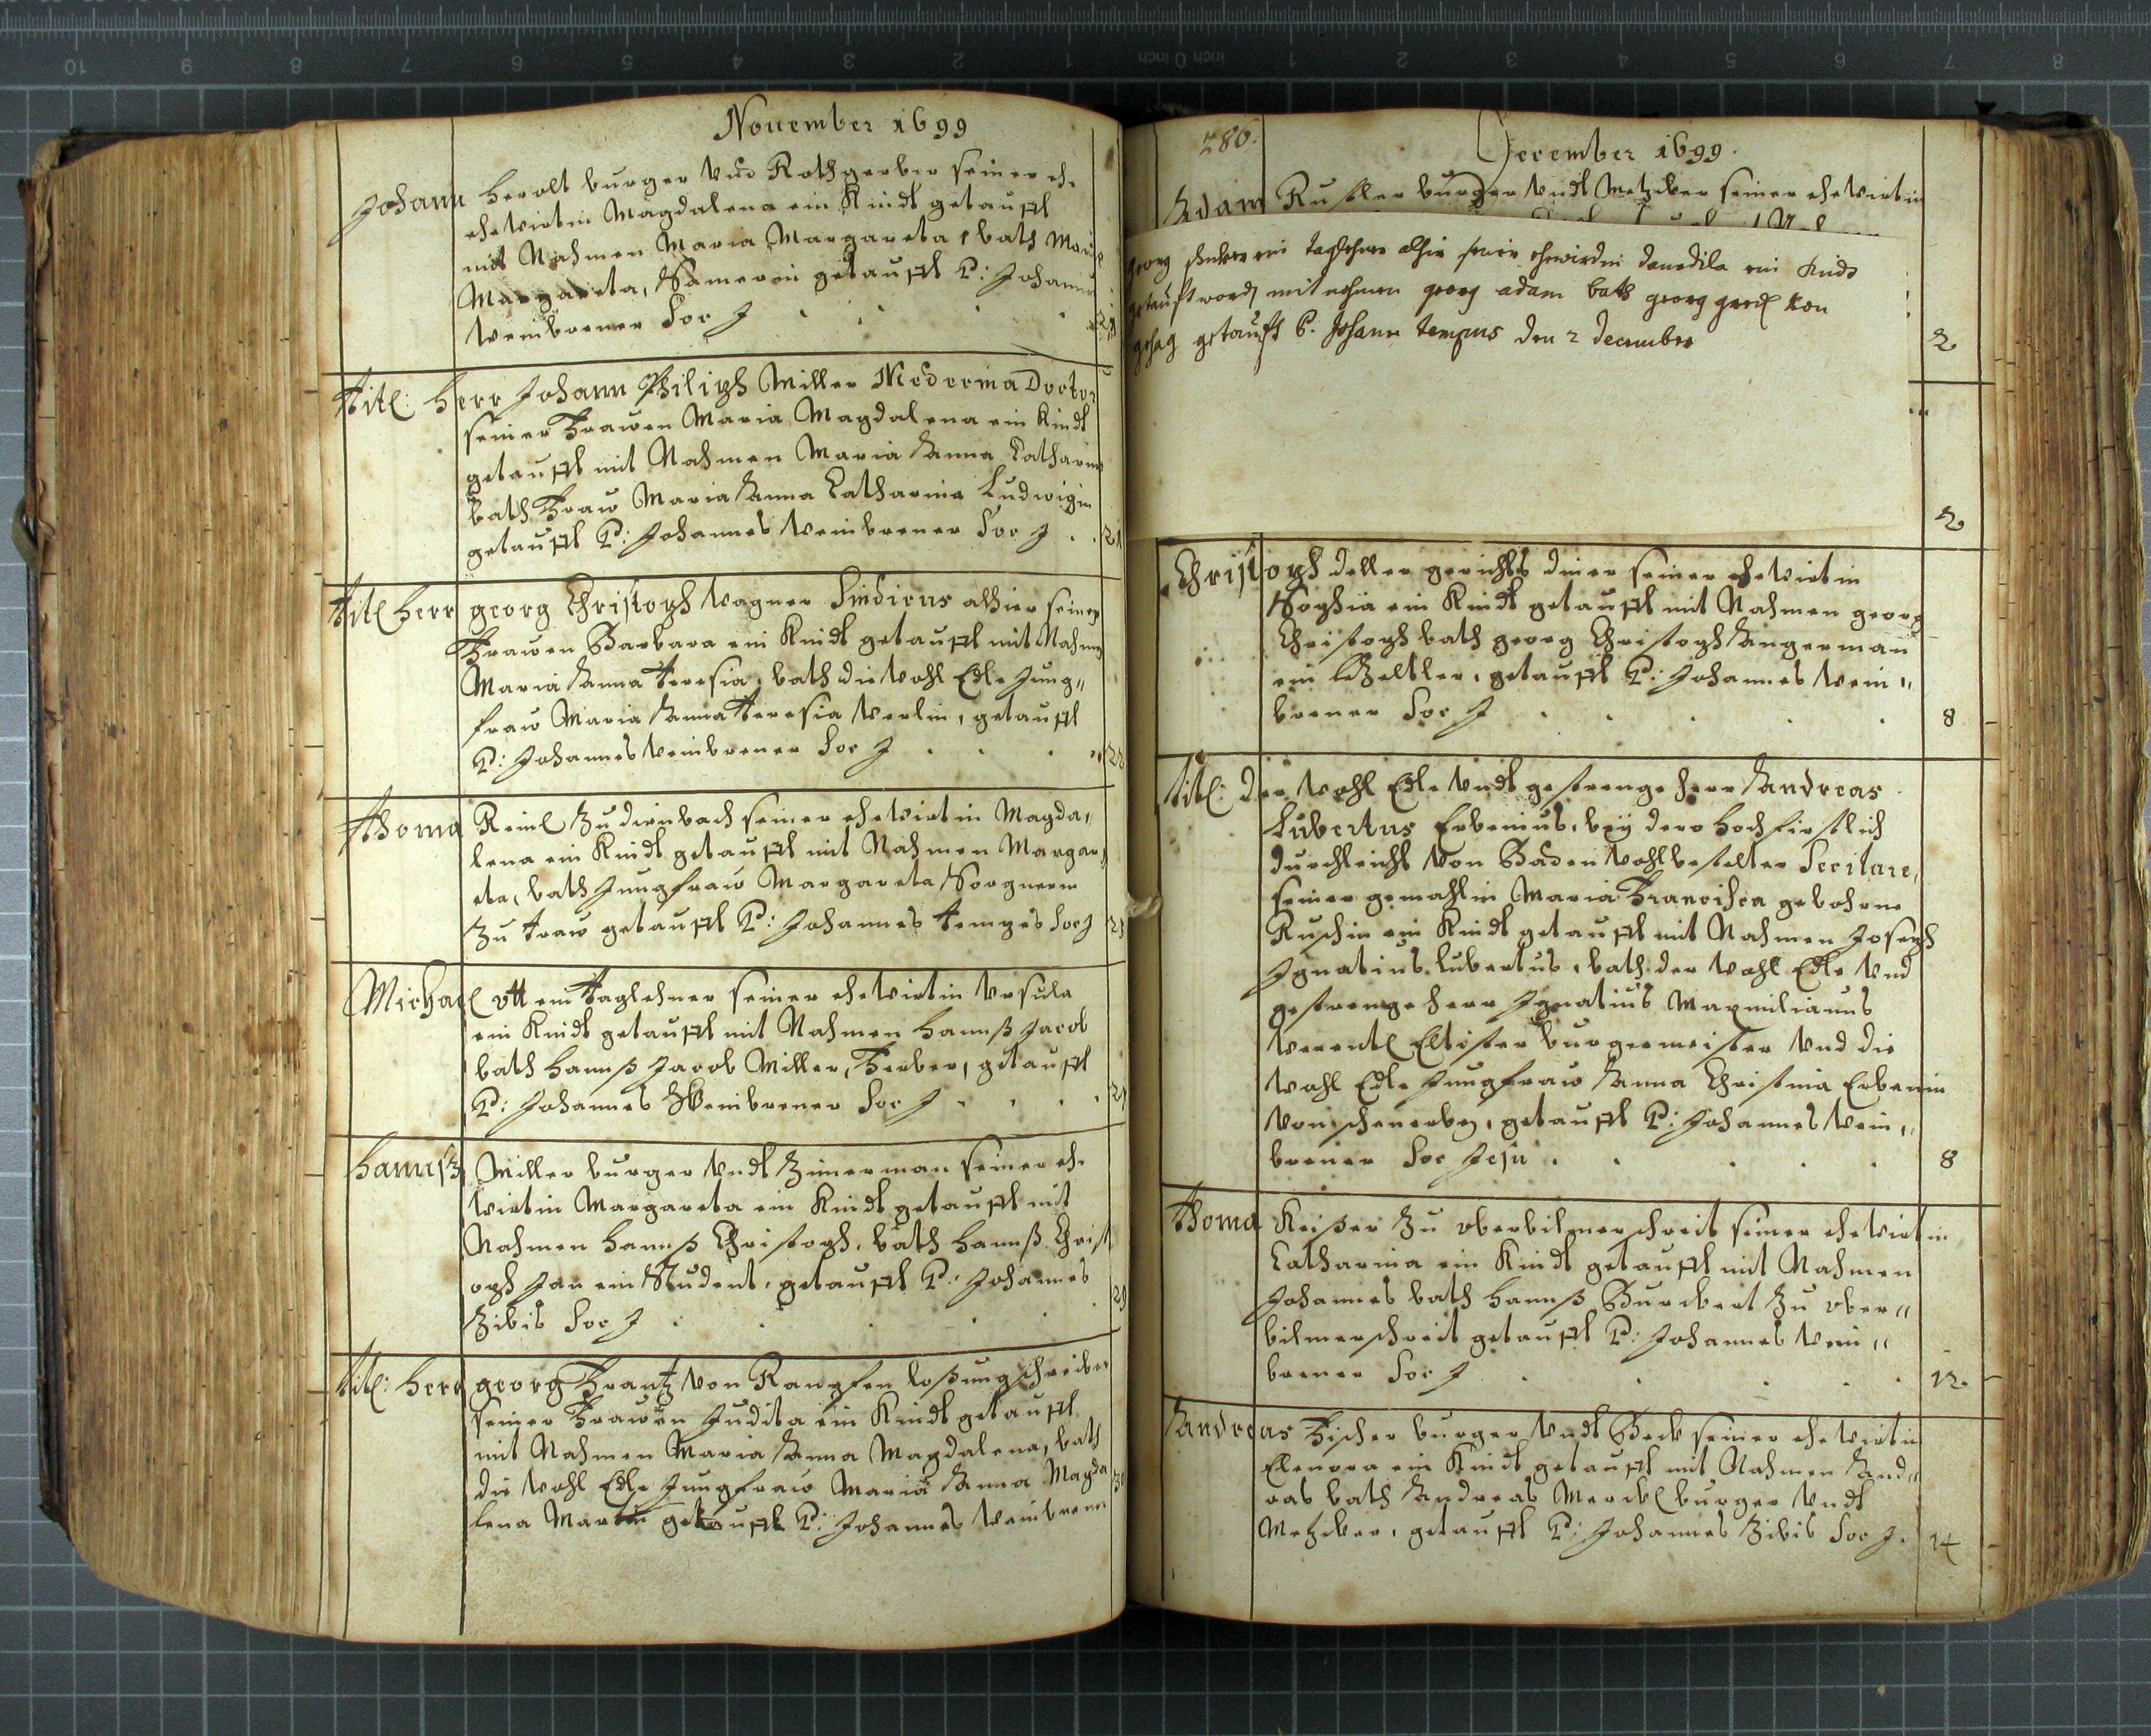 November 1699
Johann herolt burger vnd Rothgerber seiner eh-
ehewirtin Magdalena ein Kindt getaufft
mit Nahmen Maria Margareta, bath Maria
Margareta, getaufft P: Johannes
Weinbrener Soc J
21
Titl: herr Johann Philiph Miller Medecina Doctor
seiner Frawen Maria Magdalena ein Kindt
getaufft mit Nahmen Maria Anna Catharina
bath Fraw Maria Anna Catharina Ludwigin
getaufft P: Johannes Weinbrener Soc J . . 21
Titl herr georg Christoph Wagner Sindicus alhier seiner
Frawen Barbara ein Kindt getaufft mit Nahmen
Maria Anna Teresia, bath die Wohl Edle Jung„
fraw Maria Anna Teresia Werlin, getaufft
P: Johannes Weinbrener Soc J . . . 22
Thoma Reinl Zu dirnbach seiner ehewirtin Magda,
lena ein Kindt getaufft mit Nahmen Margar,
eta, bath Jungfraw Margareta Sorgnerin
Zu Traw getaufft P: Johannes Tempes Soc J 23
Michael ott ein Taglehner seiner ehewirtin Vrsula
ein Kindt getaufft mit Nahmen hannß Jacob
bath hannß Jacob Miller, Ferber, getaufft
P: Johannes Weinbrener Soc J . . . 29
hannß Miller burger vndt Zimerman seiner ehe
wirtin Margareta ein Kindt getaufft mit
Nahmen hannß Christoph, bath hannß Christ
oph Jan ein Student, getaufft P: Johannes
Zibis Soc J . . . 29
Titl: herr georg Frantz von Rangfen loßungschreiber
seiner Frawen Judita ein Kindt getaufft
mit Nahmen Maria Anna Magdalena, bath
die Wohl Edle Jungfraw Maria Anna Magda
lena Martin getaufft P: Johannes Weinbrener
30
286.
December 1699.
Adam Rustler burger vndt Metzcker seiner ehewirtin
georg ein taglehner alhir seiner ehewirdin ein Kindt
getauft word mit nahmen georg adam bath georg
getauft P. Johann tempus den 2 december
2
2
Christoph deller gerichts diner seiner ehewirtin
Sophia ein Kindt getaufft mit Nahmen georg
Christoph bath georg Christoph Angerman
ein lezeltler, getaufft P: Johannes Wein„
brener Soc J . . . . 8
Titl: der Wohl Edle vndt gestrenge herr Andreas
Lubertus Erbenius, beÿ dero hochfirstlich
durchleicht von Baden Wohlbestelter Secitare,
seiner gemahlin Maria Francisca gebohrne
Ruschin ein Kindt getaufft mit Nahmen Joseph
Ignatius lubertus, bath der Wohl Edle vnd
gestrenge herr Ignatius Maxmilianus
Werentl Eltister burgermeister vnd die
Wohl Edle Jungfraw Anna Christina Erbenin
von getaufft P: Johannes Wein„
brener Soc Jesu . . . . 8
Thoma Keißer Zu oberbilmerschreit seiner ehewirtin
Catharina ein Kindt getaufft mit Nahmen
Johannes bath hannß Burckert Zu ober„
bilmerschreit getaufft P: Johannes Wein„
brener Soc J . . . . 12.
Andreas Fischer burger vndt Beck seiner ehewirtin
Elenora ein Kindt getaufft mit Nahmen And„
reas bath Andreas Merckl burger vndt
Metzcker, getaufft P: Johannes Zibis Soc J. 14